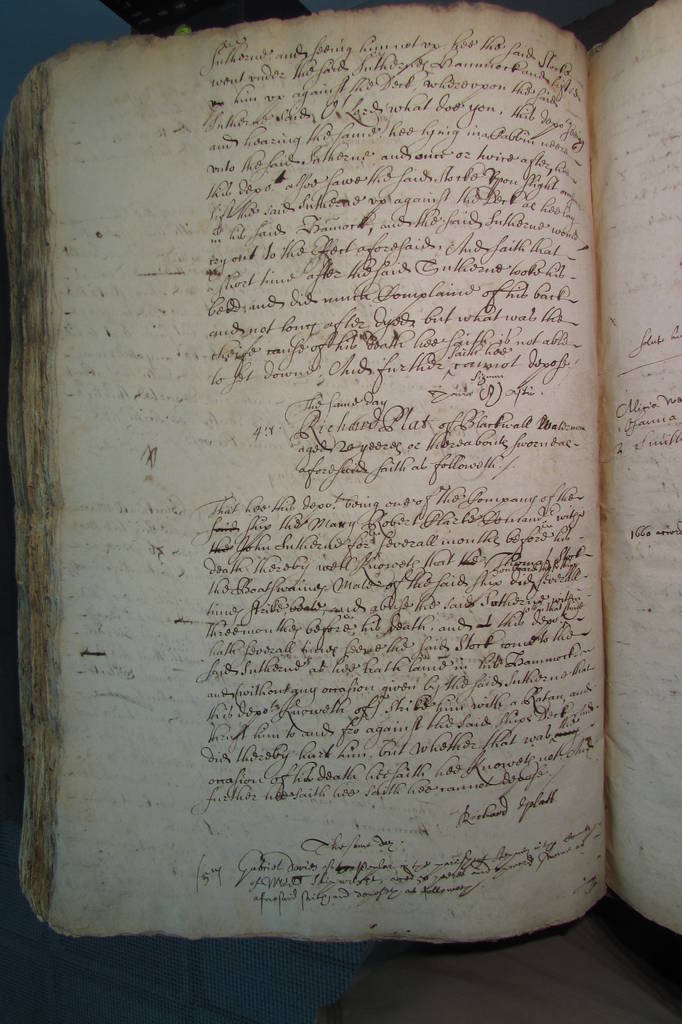 Sutherne and seeing him not up hee the said Stocke
went under the said Suthernes Hammock and lift
him up against the Deck, whereupon the said
Sutherne said, O Lord what doe you, this depot
and hearing the same, hee lying in a Cabbin neere
unto the said Sutherne and once or twice after, hee
this depot alsoe sawe the said Stocke upon slight
lift the said Sutherne up against the Deck as hee lay
in his said Hamock, and the said Sutherne would
cry out to the effect aforesaid, And saith that
a short time after the said Sutherne tooke his
bedd and did much Complaine of his back
and not long after dyed, but what was the
cheife cause of his death hee saith is not able
to set downe. And further saith hee cannot depose.
Signum
The same day
4us
Richard Plat of Blackwall Marriner
aged 20 yeeres or thereabouts sworne as
aforesaid saith as followeth.
That hee this depot being one of the Company of the
said ship the Mary Robert Clarke Comander with
the John Sutherne for severall monthes before his
death thereby well Knoweth that the Thomas Stock
the Boatswaines Mate of the said ship did severall
times strike and abuse the said Sutherne within
three monthes before his death, and this depot
hath severall times seene the said Stock come to the
said Sutherne as hee hath laine in his Hammock
and without any occasion given by the said Sutherne that
this depot Knoweth of strike him with a Ratan, and
thrust him to and fro against the said ships Deck, and
did thereby hurt him, but whether that was the
occasion of his death hee saith hee Knoweth not And
further hee saith hee cannot depose.
Richard Platt
The same day.
5us
Gabriel Davies of in the parish of
of Midd aged 30 yeeres sworne as
aforesaid saith and deposeth as followeth
1660